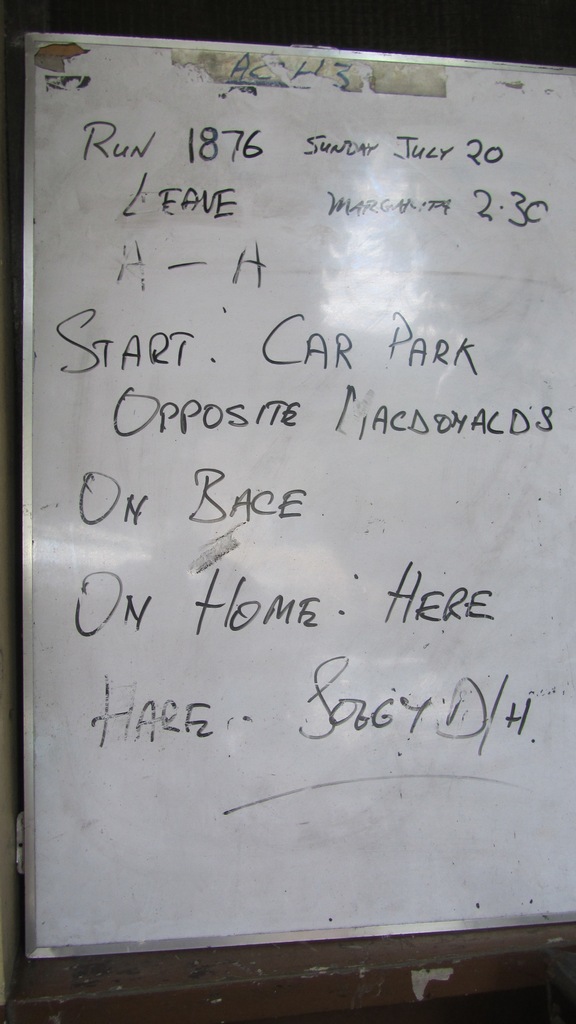 ACH3
RUN 1876 SUNDAY JULY 20
LEAVE MARGARITA 2.30
A - A
START: CAR PARK
OPPOSITE MACDONALDS
ON BACE
ON HOME: HERE
HARE: SOGGY D/H.